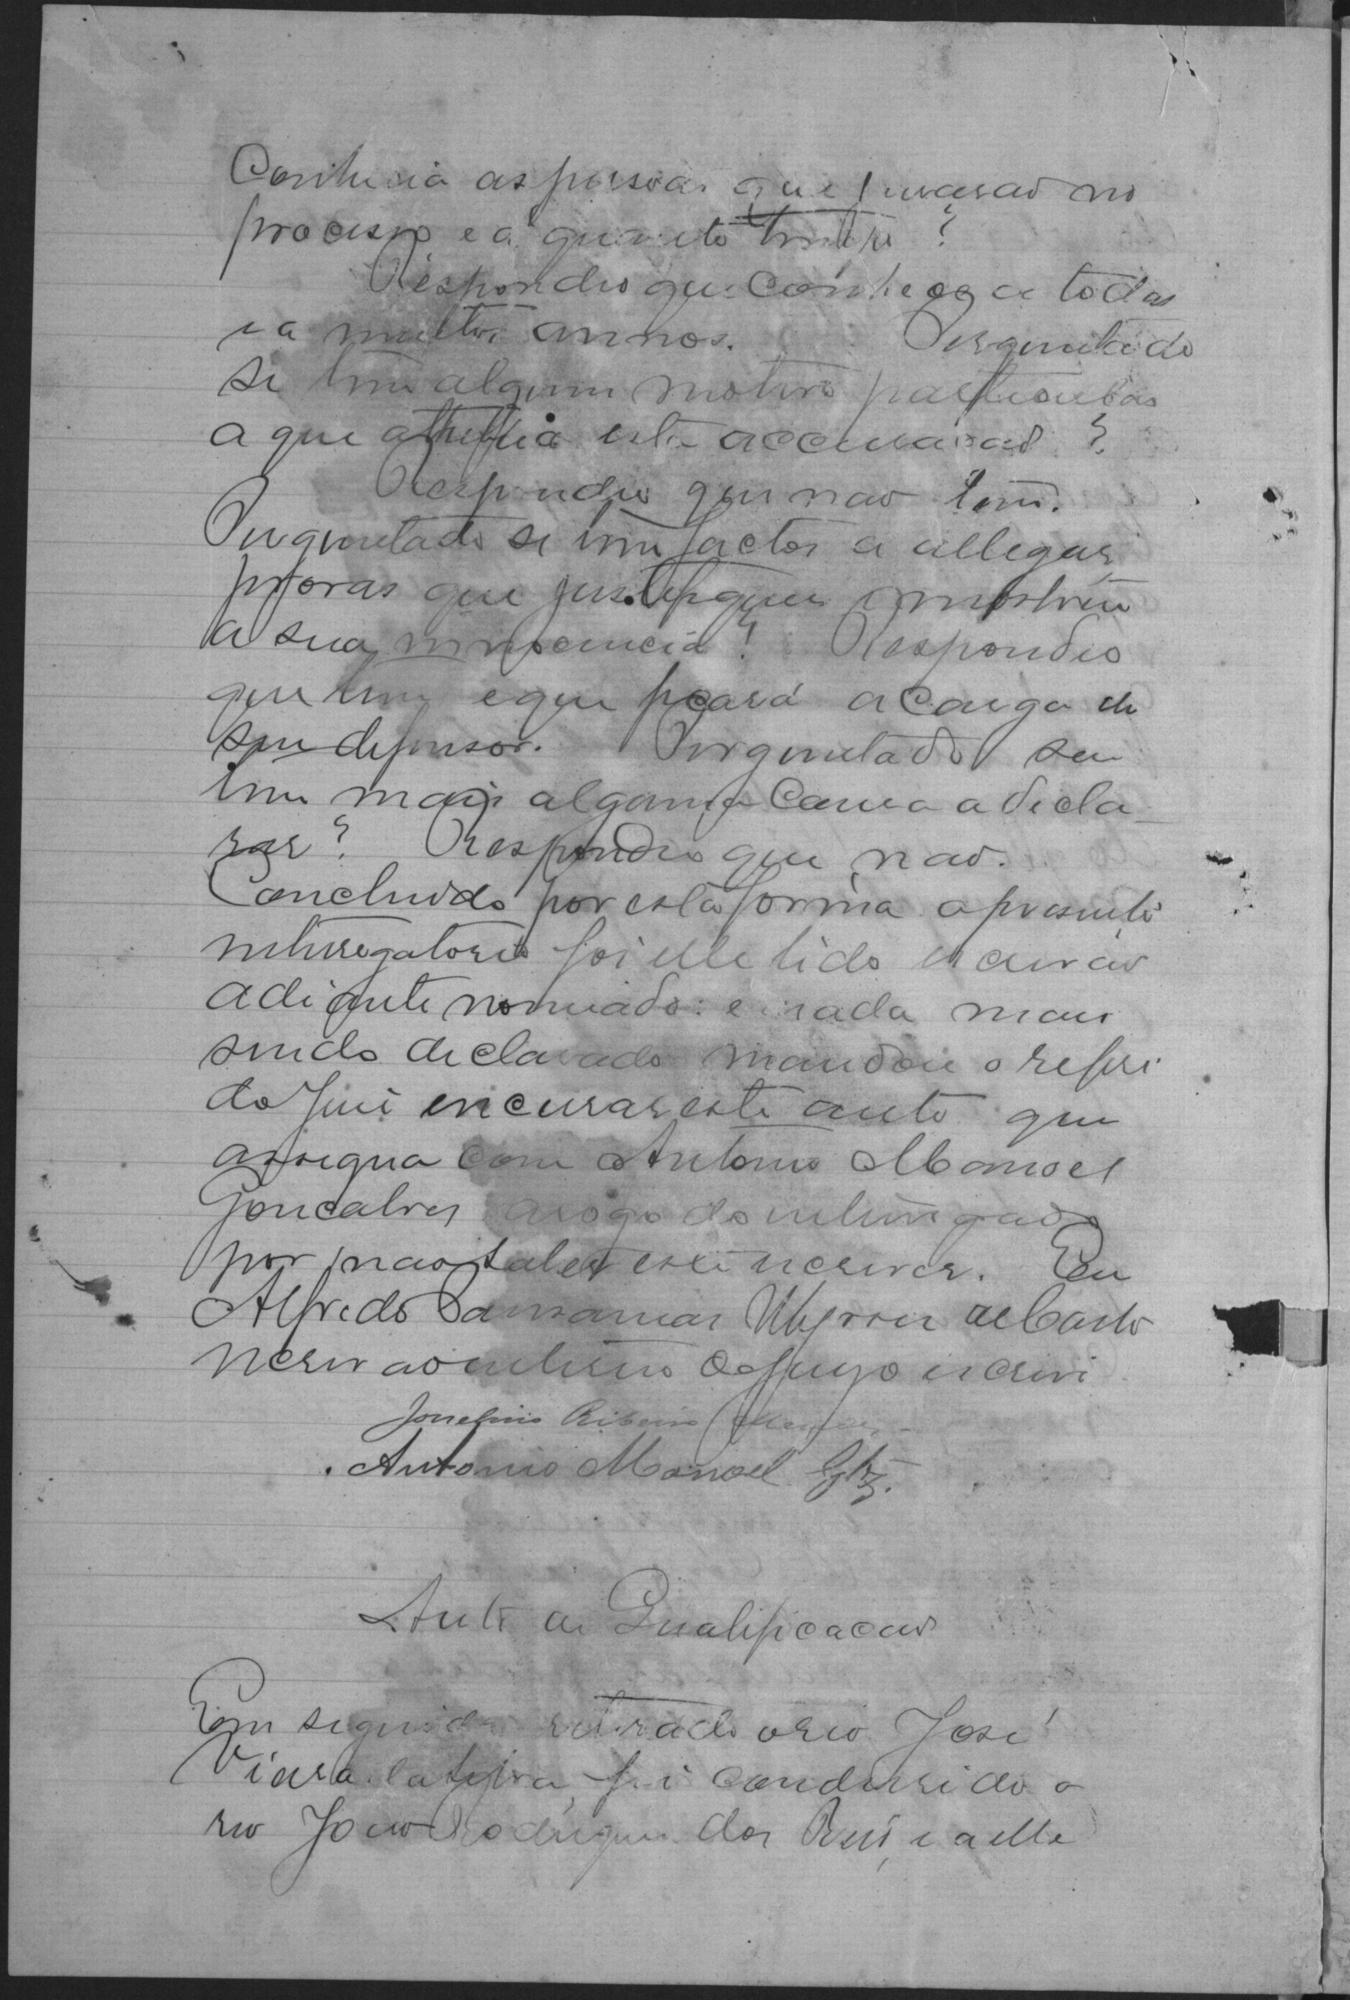 Conhecia as pessoas que jurarão no
processo e a quanto tempo?
Respondeo que conhece a todas
e a muitos annos. Perguntado
se tem algum motivo particular
a que attribua esta accusação?
Respondeo que não tem.
Perguntado se tem factos a allegar
provas que justifiquem o mostrem
a sua innocencia? Respondeo
que tem e que ficará a cargo de
seu defensor. Perguntado se
tem mais alguma cousa a decla-
rar? Respondeo que não.
Concluido por esta forma o presente
interrogatorio foi elle lido escrivão
adiante nomeado: e nada mais
sendo declarado mandou o referi
do Juiz encerrar este auto que
assigna com Antonio Manoel
Goncalves a rogo do interrogado
por não saber escrever. Eu
Alfredo de Castro
escrivão interino do Jury o escrevi
Ribeiro
Antonio Manoel Glz.
Auto de Qualificacão
Em seguida retirado o reo José
Vieira foi condusido o
reo João Rodrigues dos Reis, e a elle